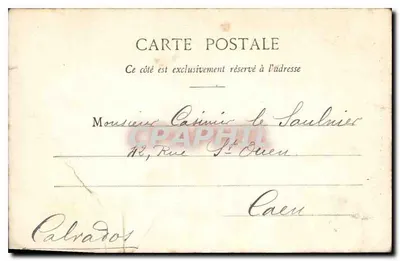 CARTE POSTALE
Ce côté est exclusivement réservé à l'adresse
Monsieur Casimir le Saulnier
112, Rue St Ouen
Caen
Calvados